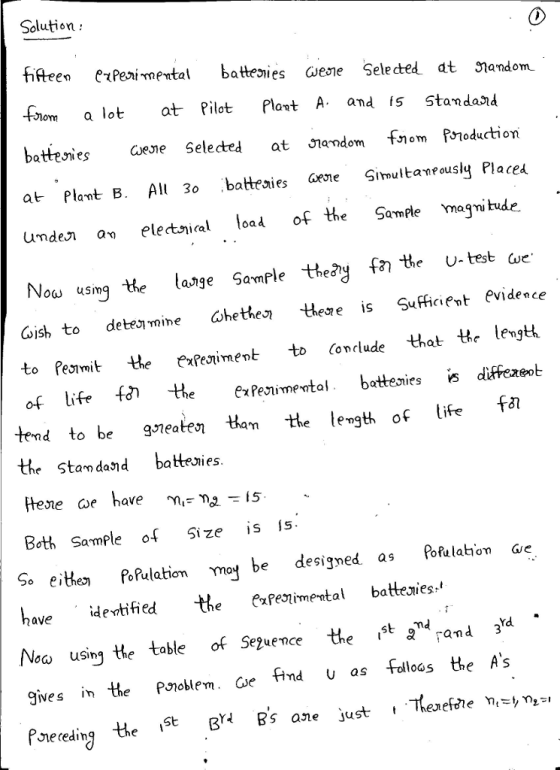 ①
Solution :
fifteen experimental batteries were selected at random
from a lot at Pilot Plant A. and 15 Standard
batteries were selected at random from Production
at Plant B. All 30 batteries were Simultaneously Placed
under an electrical load of the Sample magnitude
Now using the large Sample theory for the U-test we
wish to determine whether there is Sufficient evidence
to Permit the experiment to Conclude that the length
of life for the experimental. batteries is different
tend to be greater than the length of life for
the standard batteries.
Here we have n₁ = n₂ = 15.
Both Sample of Size is 15.
So either Population may be designed as Population we
have identified the experimental batteries.
Now using the table of Sequence the 1st 2nd and 3rd
gives in the Problem. we find U as follows the A's
Preceding the 1st Brd B's are just 1 Therefore n₁=1, n₂=1